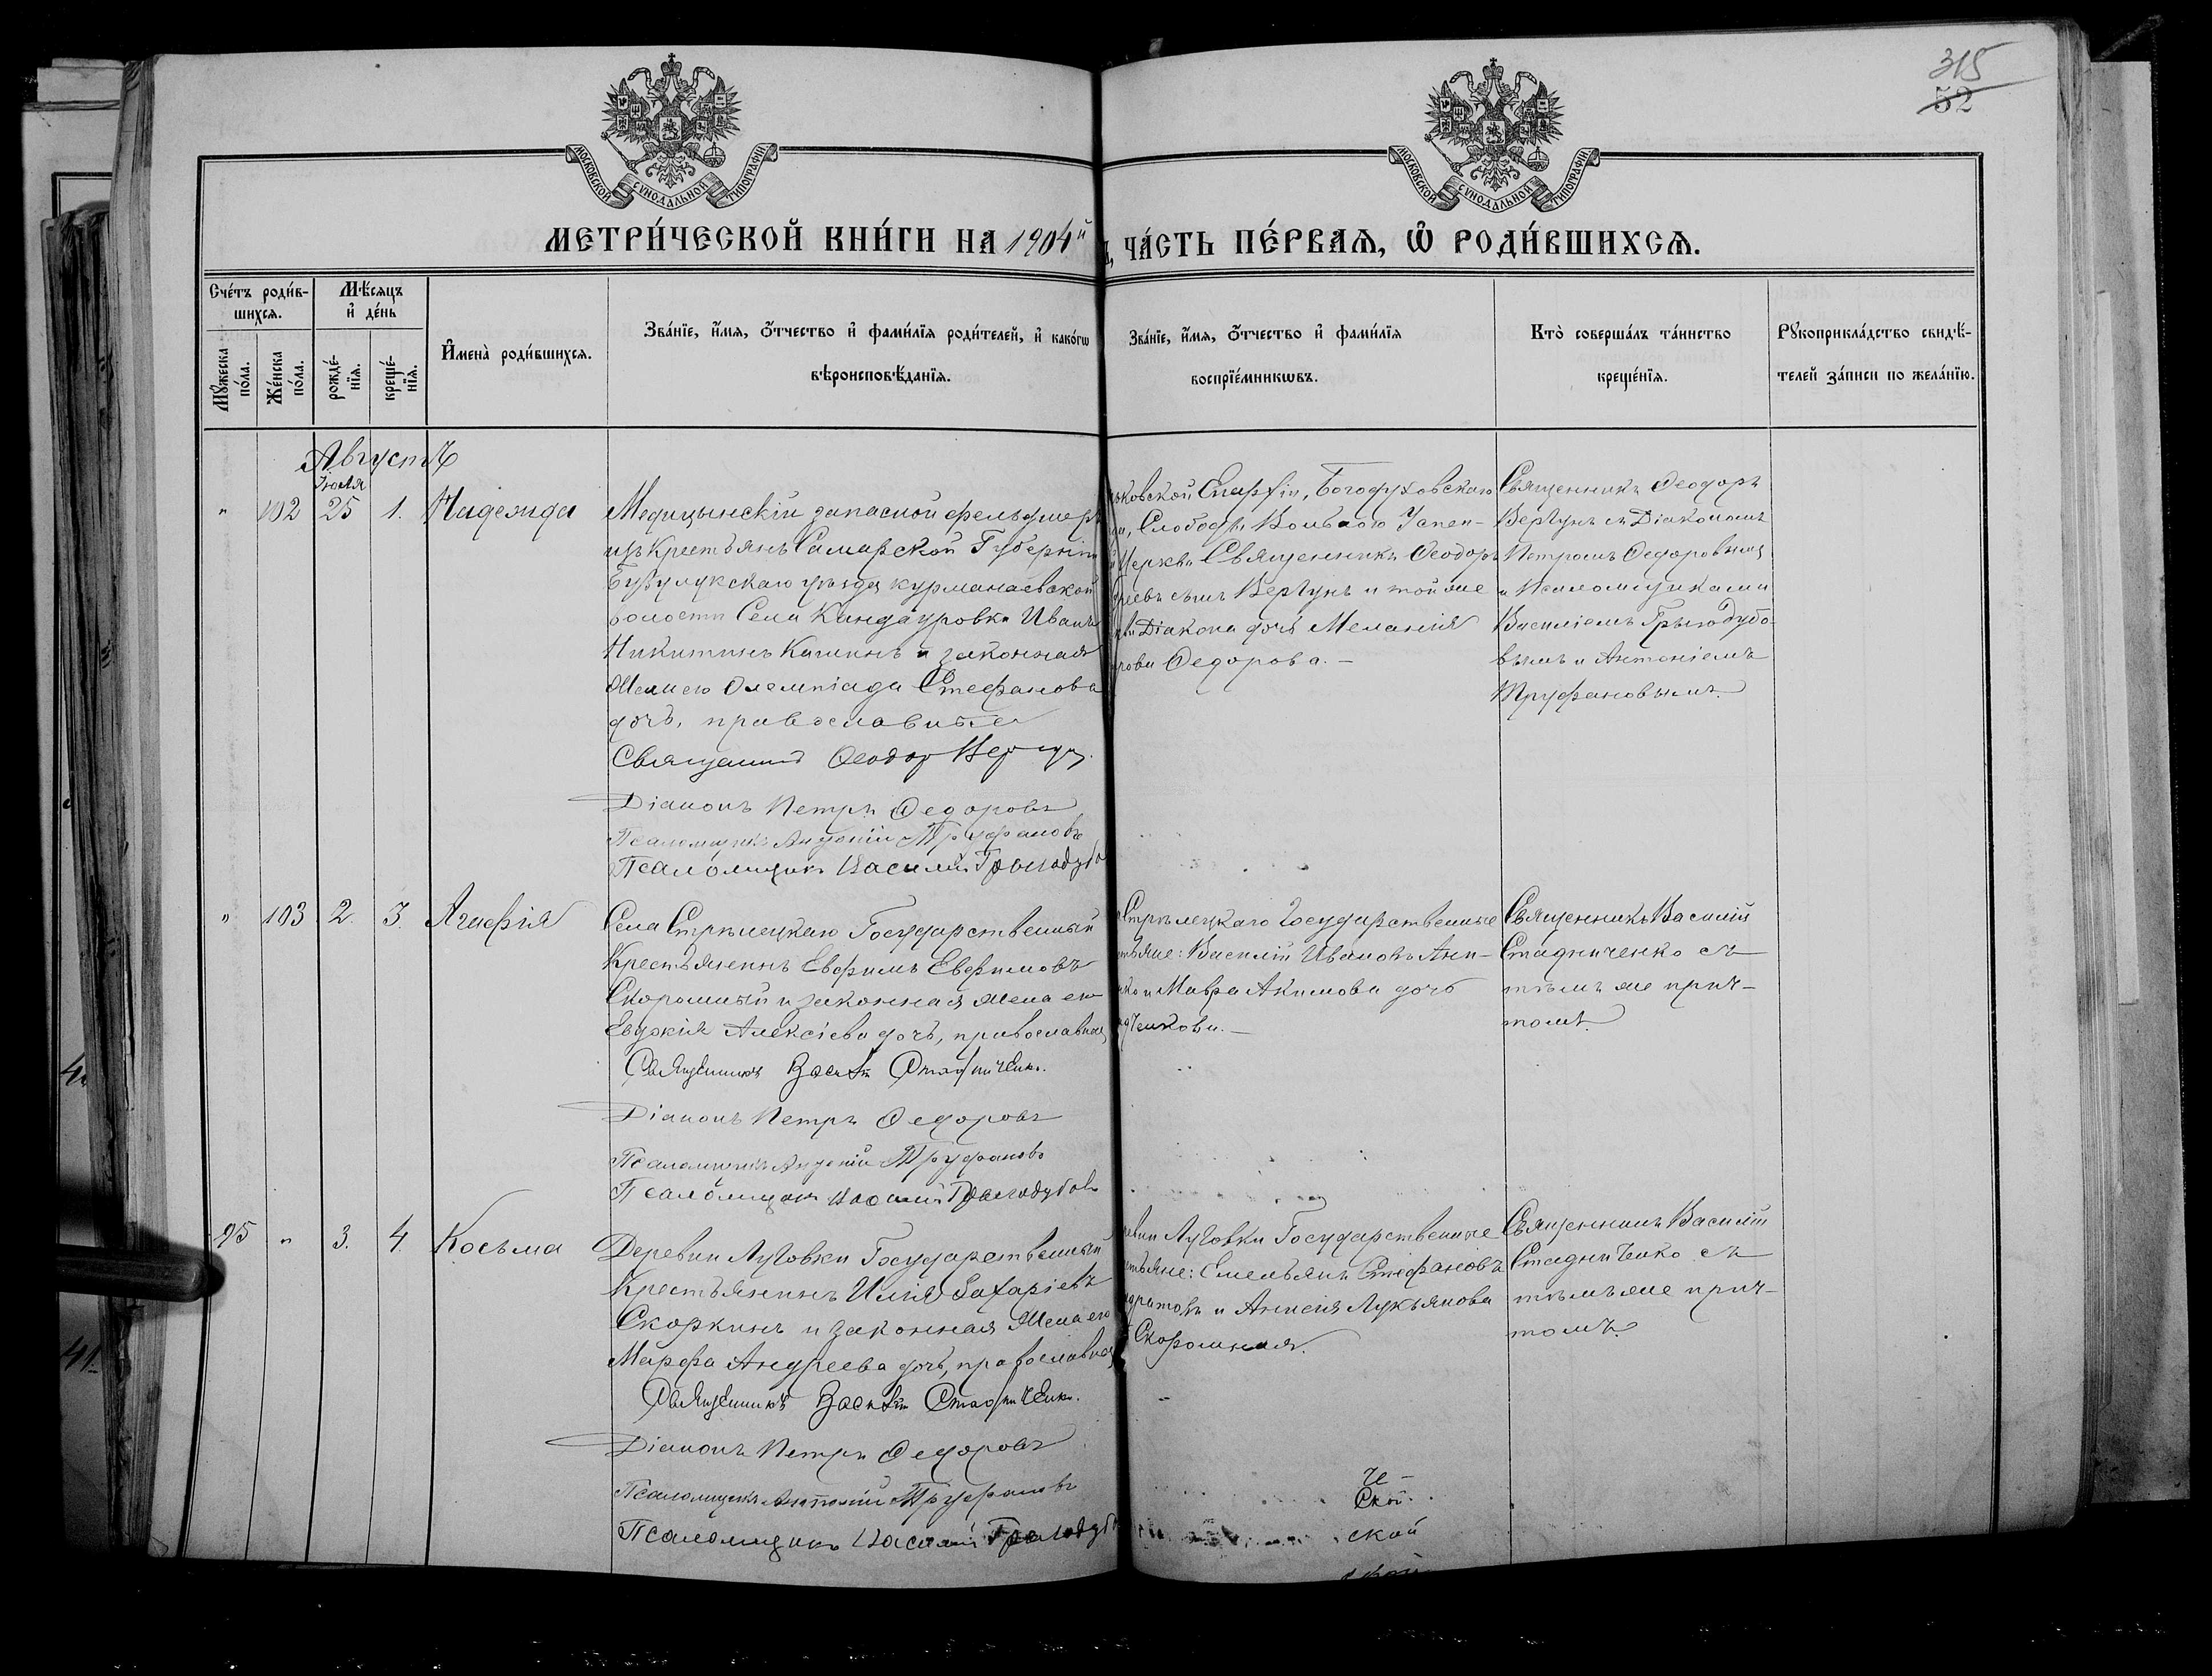 315
52
МОСКОВСКОЙ СѴНОДАЛЬНОЙ ТИПОГРАФІИ
МОСКОВСКОЙ СѴНОДАЛЬНОЙ ТИПОГРАФІИ
МЕТРИ́ЧЕСКОЙ КНИ́ГИ НА 1904й
ЧА́СТЬ ПЕ́РВАѦ, Ѡ҆ РОДИ́ВШИХСѦ.
Сче́тъ роди́в-
шихсѧ.
Мꙋ́жеска по́ла.
Же́нска по́ла.
Мѣ́сѧцъ и҆ де́нь
рожде́-нїѧ.
креще́-нїѧ.
И҆мена̀ роди́вшихсѧ.
Зва́нїе, и҆́мѧ, ѻ҆́тчество и҆ фами́лїѧ роди́телей, и҆ како́гѡ
вѣроисповѣ́данїѧ.
Зва́нїе, и҆́мѧ, ѻ҆́тчество и҆ фами́лїѧ
воспрїе́мникѡвъ.
Кто̀ соверша́лъ та́инство
креще́нїѧ.
Рꙋкоприкла́дство свидѣ́-
телей за́писи по жела́нїю.
Августъ
Іюля
" 102 25 1. Надежда
Медицынскій запасной фельдшеръ
изъ Крестьянъ Самарской Губерніи
Бузулукскаго уѣзда курманаевской
волости Села Кандауровки Иванъ
Никитинъ и законная
жена его Олемпіада Стефанова
дочь, православные
Священникъ Ѳеодор Вергун
Діаконъ Петръ Ѳедоровъ
Псаломщикъ Антоній Труфановъ
Псаломщикъ Василій
ьковской Епархіи, Богодуховскаго
Слободы Вольного Успен-
Церкви Священникъ Ѳеодоръ
реевъ сынъ Вергунъ и той же
Діакона дочь Меланія
Ѳедорова. —
Священникъ Ѳеодоръ
Вергунъ съ Діакономъ
Петромъ Ѳедоровымъ
и Псаломщиками
Василіемъ
вымъ и Антоніемъ
Труфановымъ.
" 103 2. 3. Агафія
Села Стрѣлецкаго Государственный
Крестьянинъ Евфимъ Евфимовъ
Скоромный и законная жена его
Евдокія Алексіева дочь, православные
Священникъ Василій Стадниченко.
Діаконъ Петръ Ѳедоровъ
Псаломщикъ Антоній Труфановъ
Псаломщикъ Василій
Стрѣлецкаго Государственные
тьяне: Василій Ивановъ
ко и Мавра Акимова дочь
Священникъ Василій
Стадниченко съ
тѣмъ же прич-
томъ.
95 " 3. 4. Косьма
Деревни Луговки Государственный
Крестьянинъ Илія Захаріевъ
Скоркинъ и законная жена его
Марфа Андреева дочь, православные
Священникъ Василій Стадниченко.
Діаконъ Петръ Ѳедоровъ
Псаломщикъ Антоній Труфановъ
Псаломщикъ Василій
Луговки Государственные
тьяне: Емельянъ Стефановъ
и Анисія Лукьянова
Скоромная.
Священникъ Василій
Стадниченко съ
тѣмъ же прич-
томъ.
че-
ской
ской